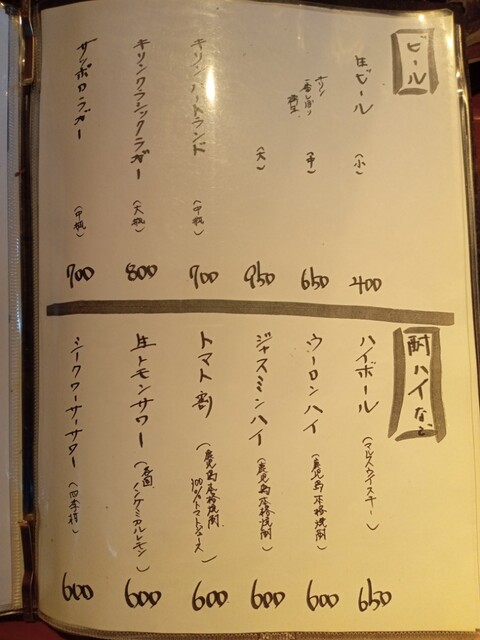 ビール
生ビール (小) 400
キリン一番しぼり樽生 (中) 650
(大) 950
キリンハートランド (中瓶) 700
キリンクラシックラガー (大瓶) 800
サッポロラガー (中瓶) 700
酎ハイなど
ハイボール (マルスウイスキー) 650
ウーロンハイ (鹿児島本格焼酎) 600
ジャスミンハイ (鹿児島本格焼酎) 600
トマト割 (鹿児島本格焼酎 100%トマトジュース) 600
生レモンサワー (ノンケミカルレモン) 600
シークワーサーサワー 600